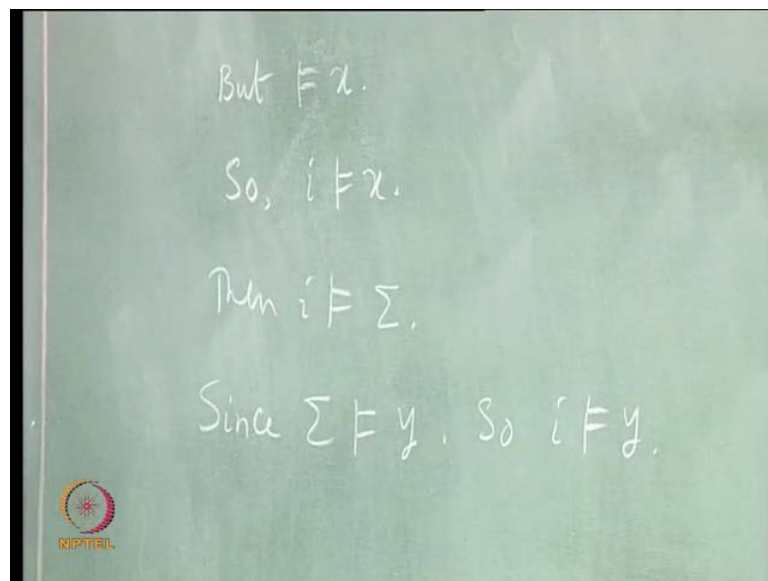 But ⊨ x.
So, i ⊨ x.
Then i ⊨ Σ.
Since Σ ⊨ y. So i ⊨ y.
NPTEL